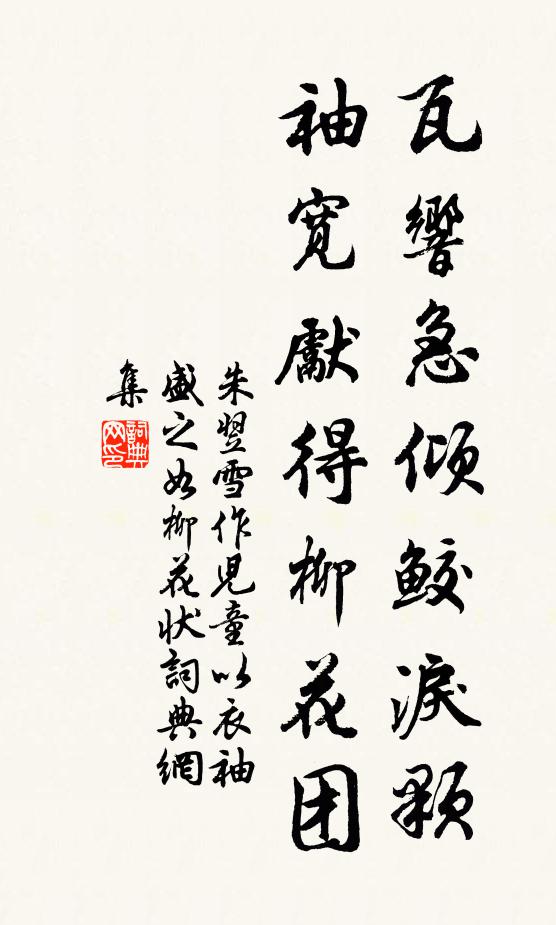 瓦響急傾鮫淚顆
袖寬獻得柳花团
朱翌雪作兒童以衣袖
盛之如柳花状詞典網
集
詞典网印